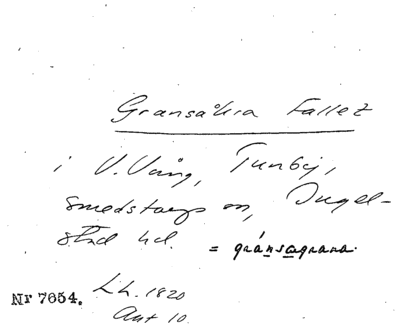 Gransåkra Fallet
i V. Vång, Tunbyj,
Smedstorps sn, Ingel-
stad hd. = gránsagrana.
Nr 7654. Lh. 1820
Akt 10